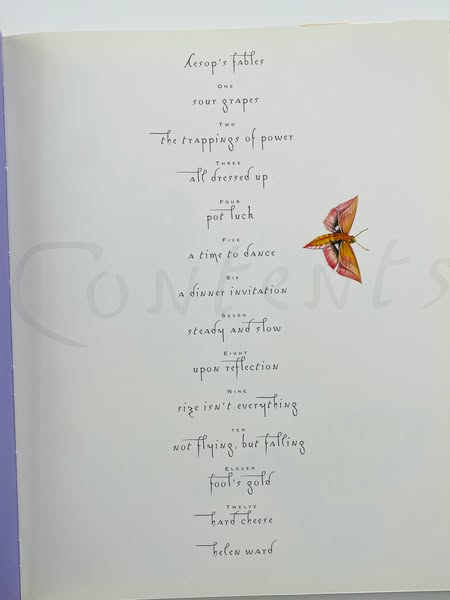 Aesop's fables
Contents
One
sour grapes
Two
the trappings of power
Three
all dressed up
Four
pot luck
Five
a time to dance
Six
a dinner invitation
Seven
steady and slow
Eight
upon reflection
Nine
size isn't everything
ten
not flying, but falling
Eleven
fool's gold
Twelve
hard cheese
helen ward